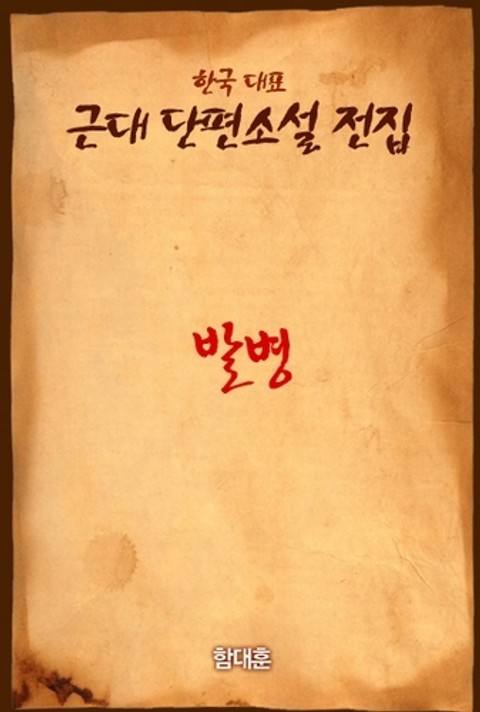 한국 대표
근대 단편소설 전집
발병
함대훈